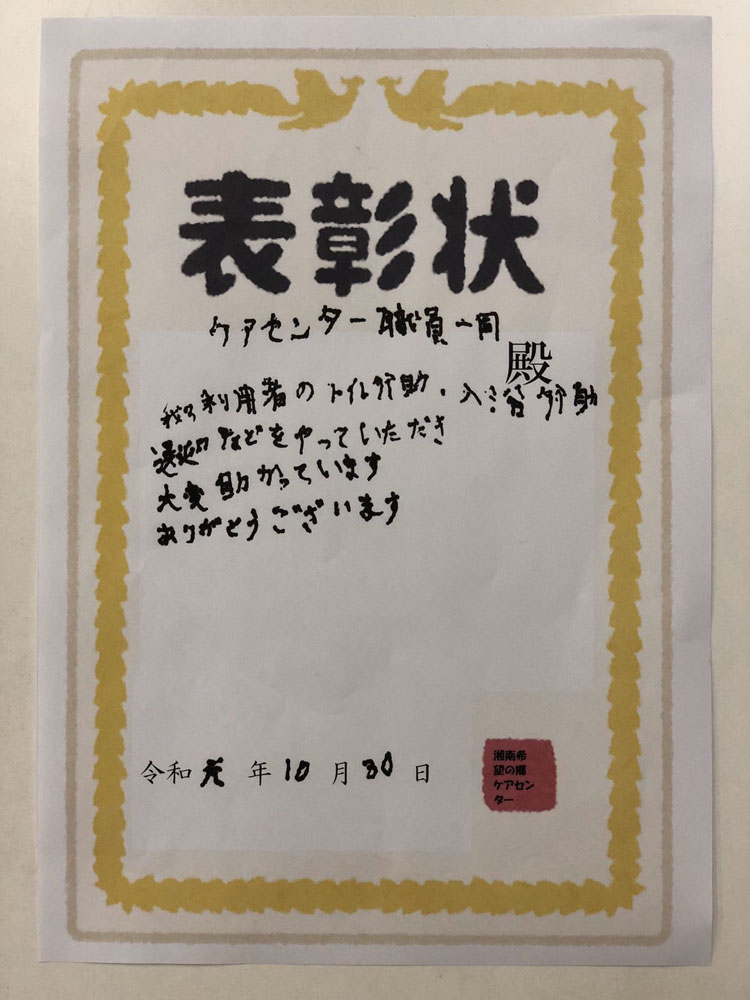 表彰状
ケアセンター職員一同
殿
我々利用者のトイレ介助、入浴介助
送迎などをやっていただき
大変助かっています
ありがとうございます
令和元年10月30日
湘南希
望の郷
ケアセン
ター